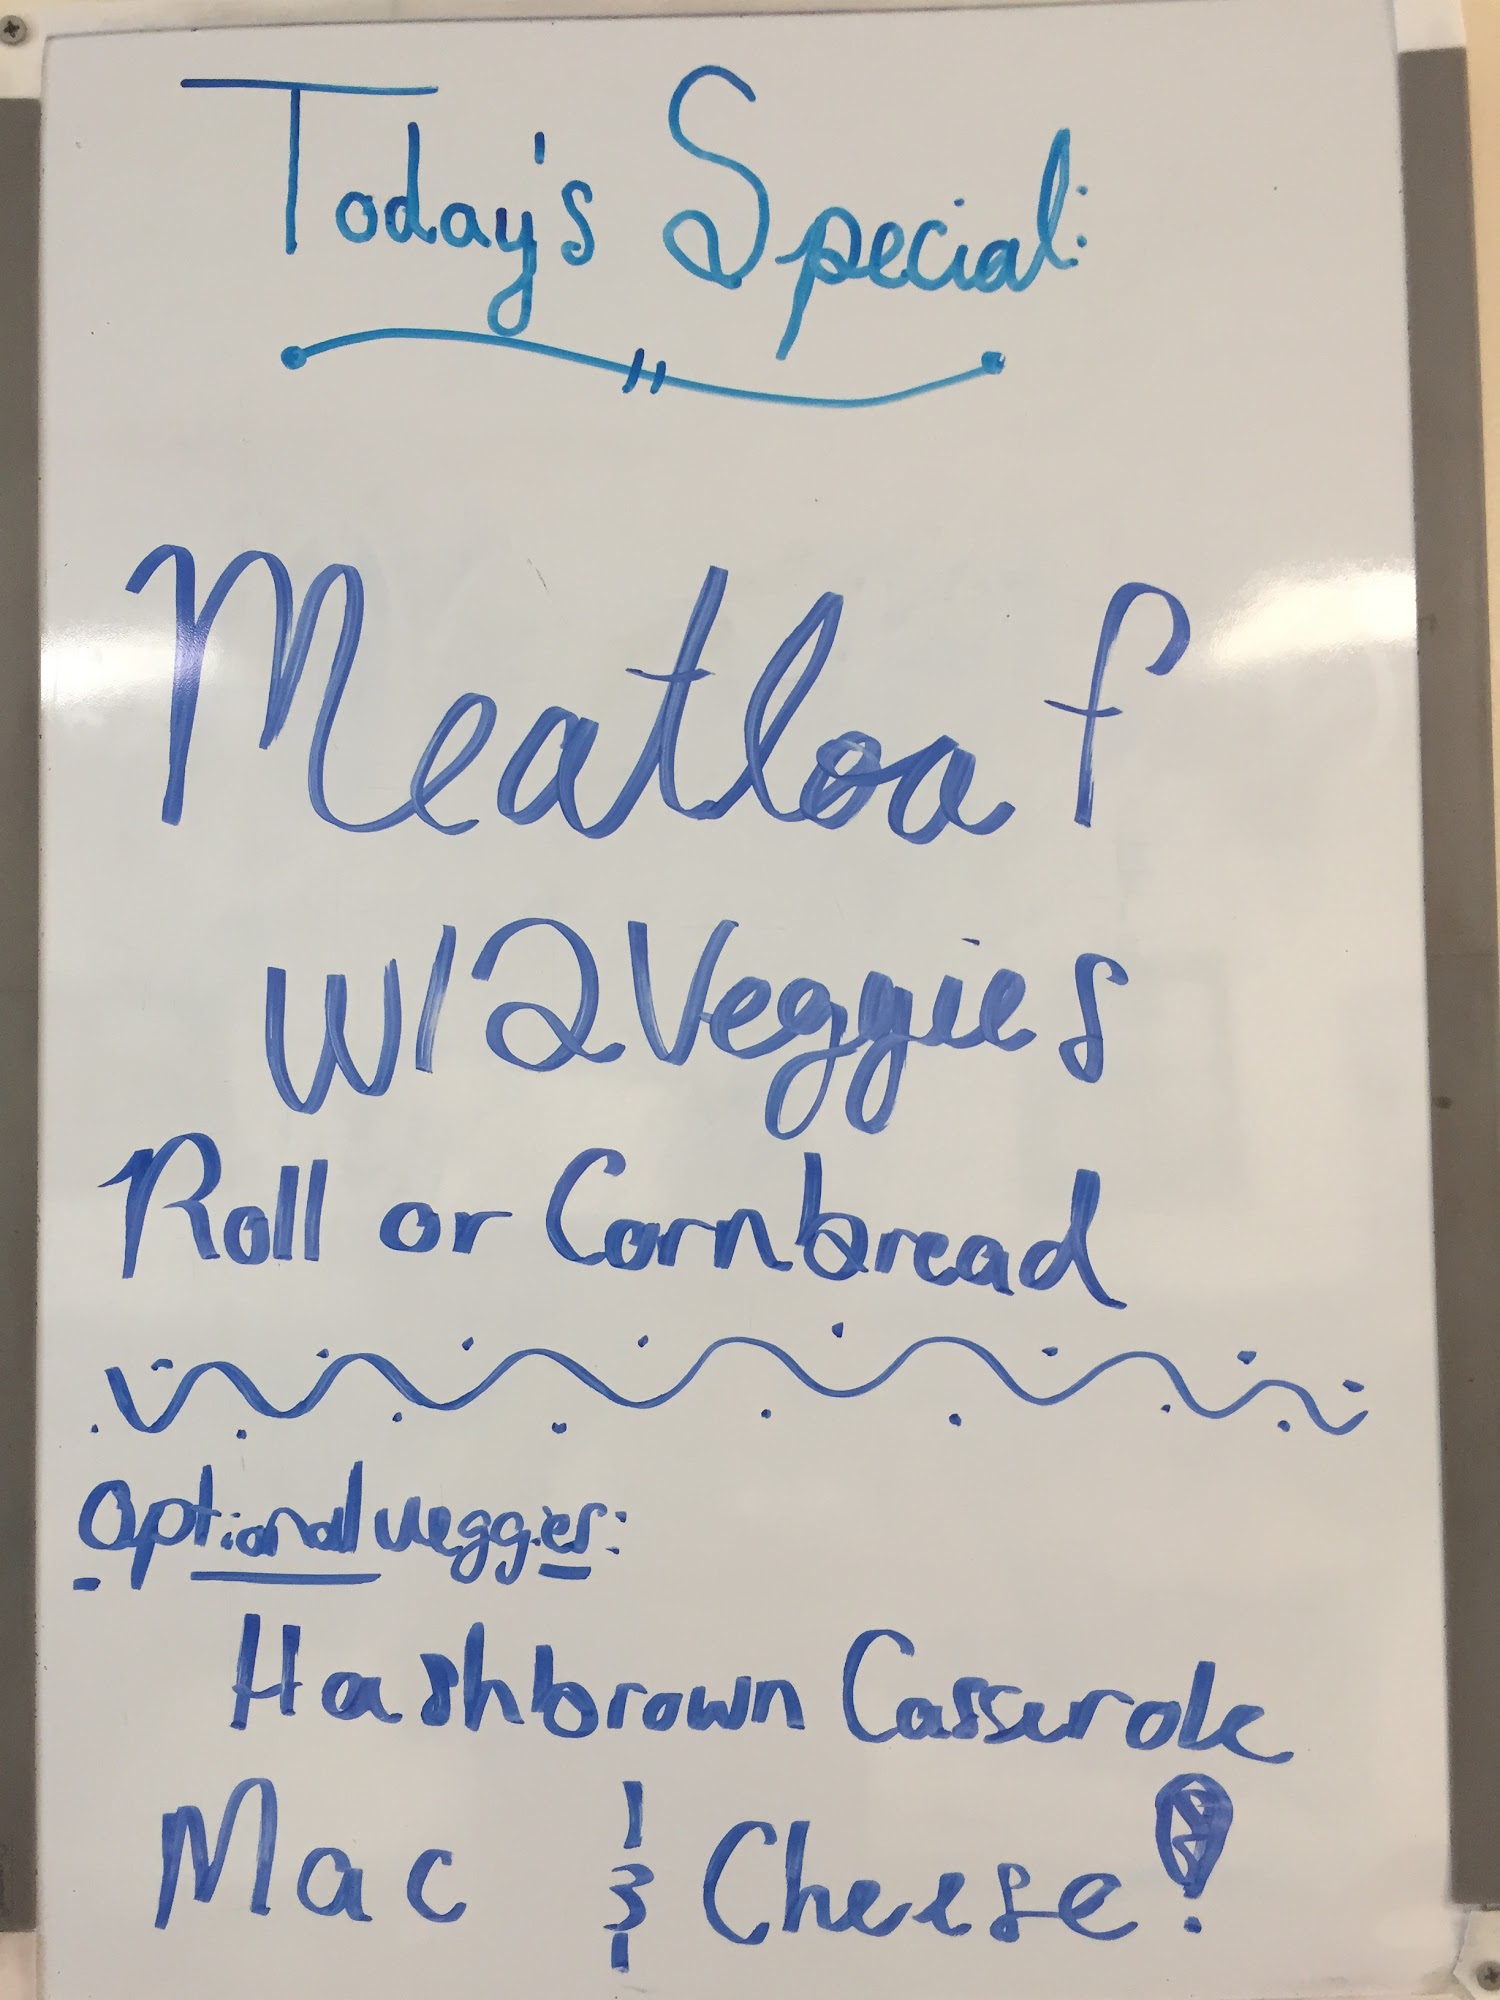 Today's Special:
Meatloaf
w/ 2 Veggies
Roll or Cornbread
Optional veggies:
Hashbrown Casserole
Mac & Cheese!